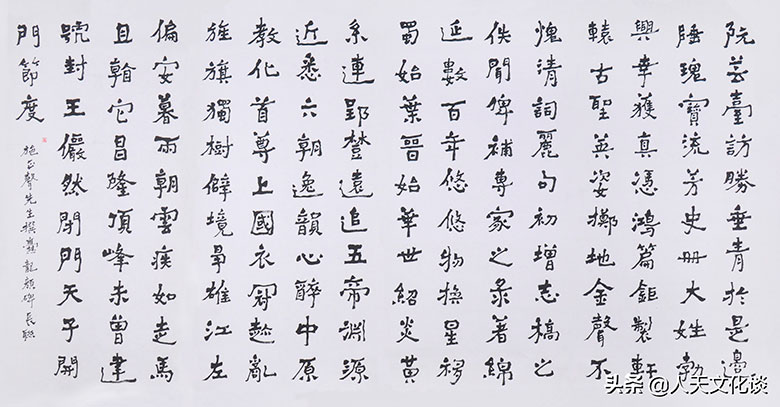 阮芸臺訪勝垂青於是邊
陲瑰寶流芳史冊大姓勃
興幸獲真憑鴻篇鉅製軒
轅古聖英姿擲地金聲不
愧清詞麗句初增志稿之
佚聞俾補專家之彔著綿
延數百年悠悠物換星移
蜀始葉晉始華世紹炎黃
系連郢楚遠追五帝淵源
近悉六朝逸韻心醉中原
教化首尊上國衣冠趁亂
旌旗獨樹僻境爭雄江左
偏安暮雨朝雲疾如走馬
且翰它昌隆頂峰未曾建
號封王儼然閉門天子開
門節度
施聲先生撰爨龍顏碑長聯
头条 @人天文化谈